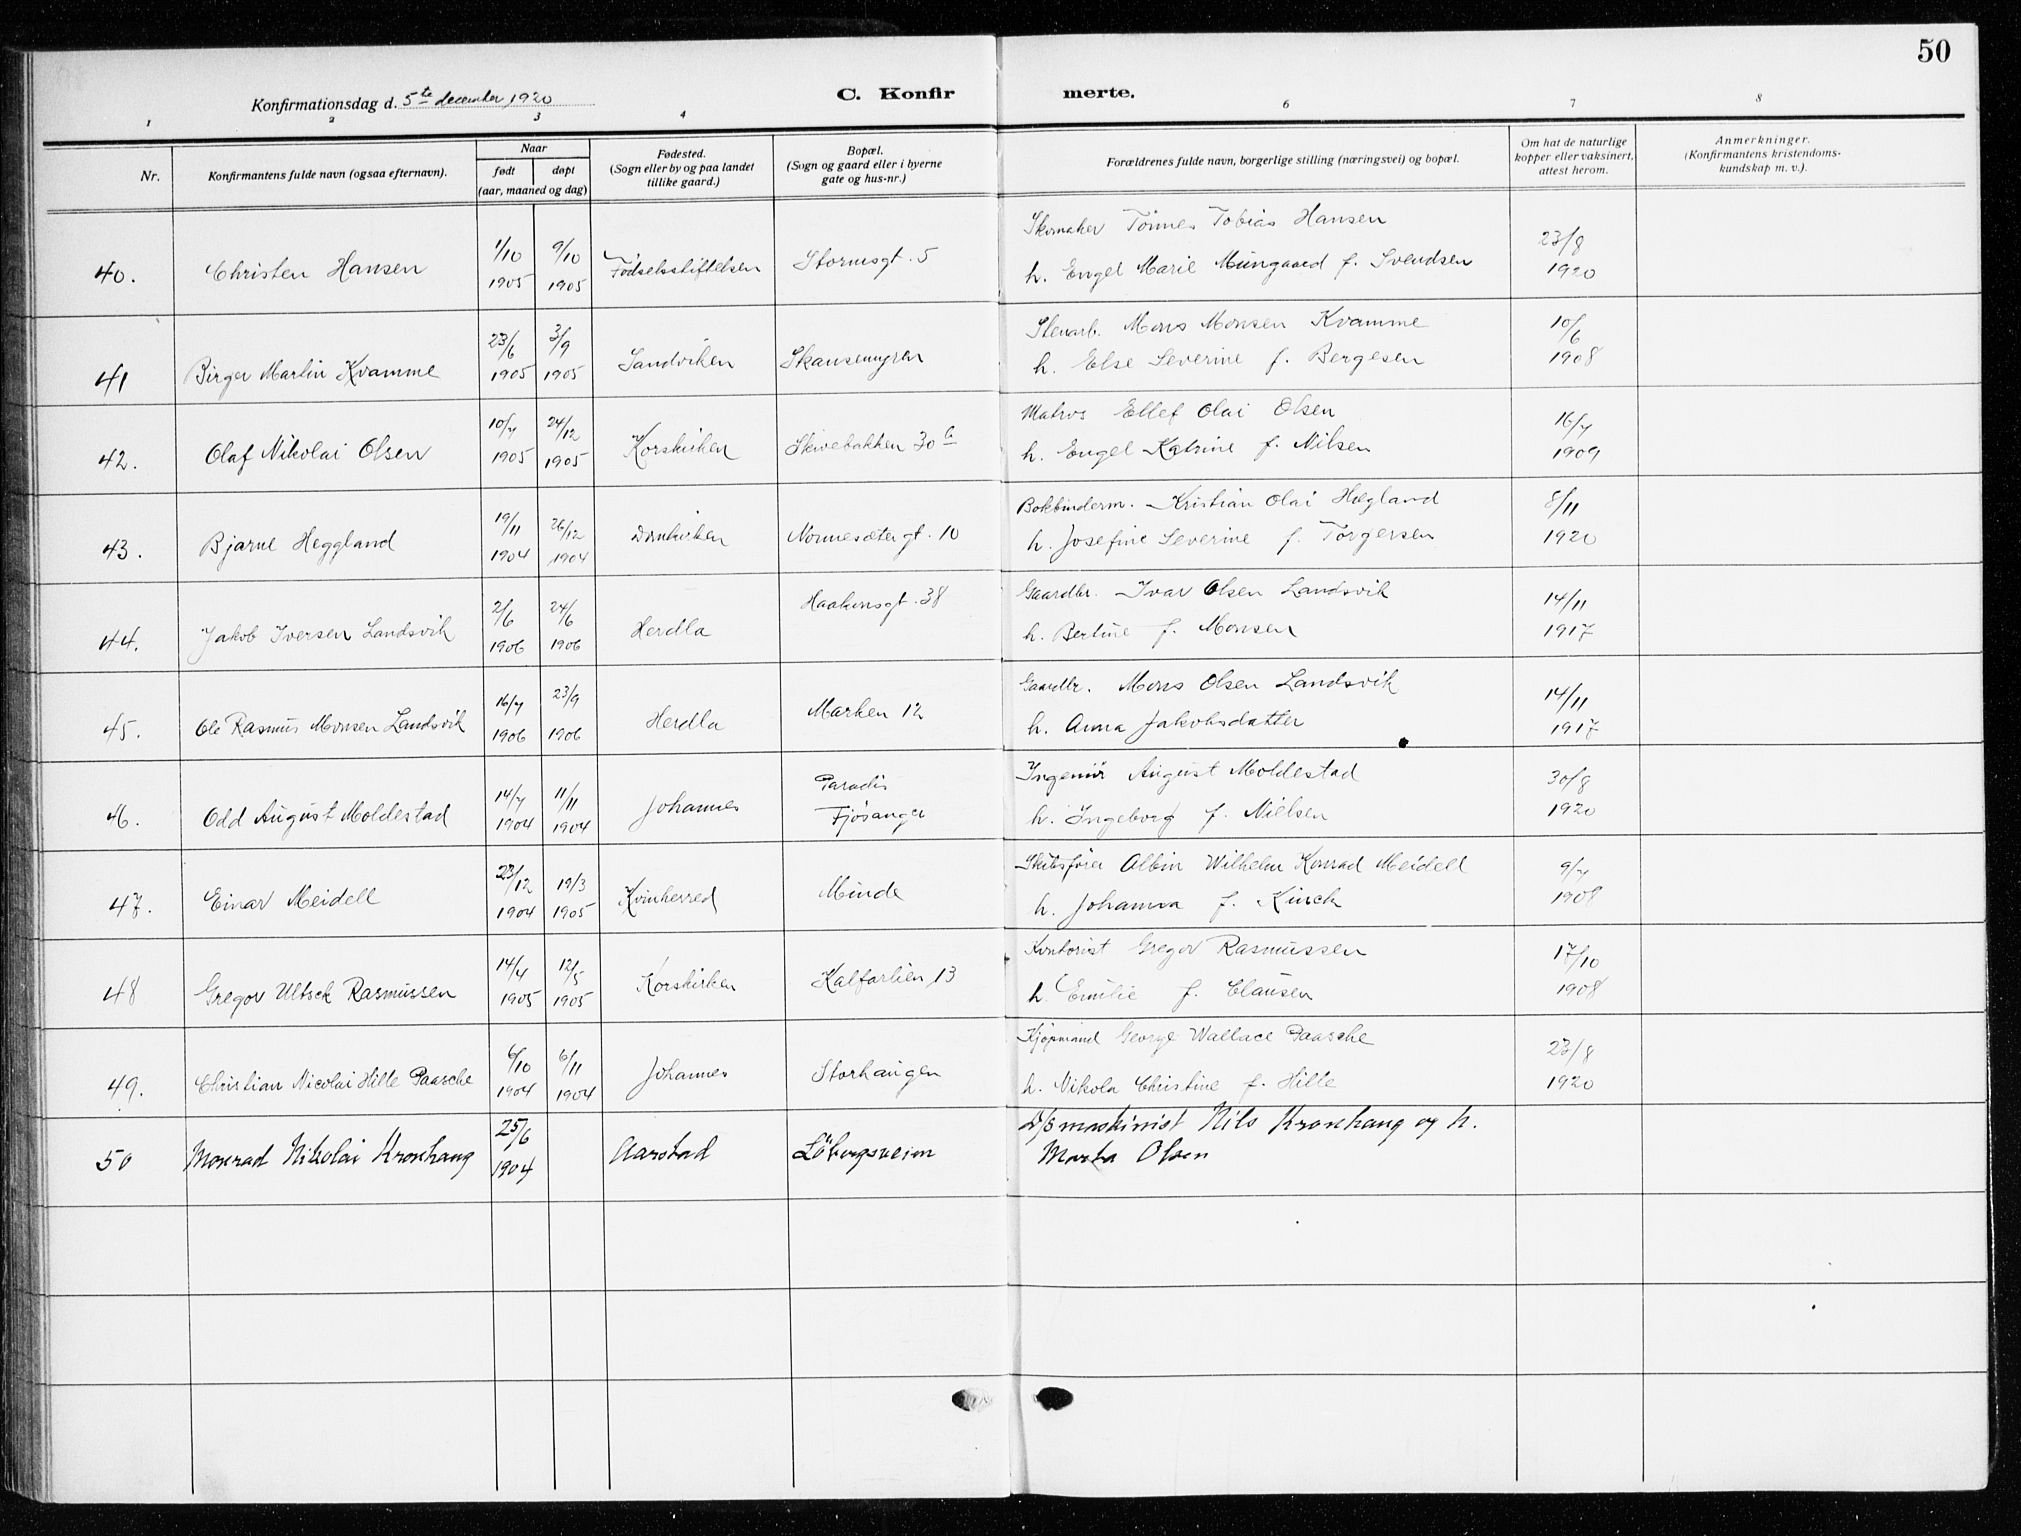 50
Konfirmationsdag d. 5te december, 1920
C. Konfir merte.
1 2 3 4 6 7 8
Nr.
Konfirmantens fulde navn (ogsaa efternavn).
Naar
født døpt
(aar, maaned og dag)
Fødested.
(Sogn eller by og paa landet
tillike gaard.)
Bopæl.
(Sogn og gaard eller i byerne
gate og hus-nr.)
Forældrenes fulde navn, borgerlige stilling (næringsvei) og bopæl.
Om hat de naturlige
kopper eller vaksinert,
attest herom.
Anmerkninger.
(Konfirmantens kristendoms-
kundskap m. v.).
Skomaker Tönnes Tobias Hansen 23/8
40. Christen Hansen 1/10 1905 9/10 1905 Födselsstiftelsen Stormsgt. 5
h. Engel Marie Mungaard f. Svendsen 1920
Stenarb. Mons Monsen Kvamme 10/6
41 Birger Martin Kvamme 23/6 1905 3/9 1905 Sandviken Skansemyren
h. Else Severine f. Bergesen 1908
Matros Ellef Olai Olsen 16/7
42. Olaf Nikolai Olsen 10/7 1905 24/12 1905 Korskirken Skivebakken 30 b
h. Engel Katrine f. Nilsen 1909
Bokbinderm. Kristian Olai Hegland 8/11
43. Bjarne Heggland 19/11 1904 26/12 1904 Domkirken Nonnesætergt. 10
h. Josefine Severine f. Torgersen 1920
Gaardbr. Ivar Olsen Landsvik 14/11
44. Jakob Iversen Landsvik 2/6 1906 24/6 1906 Herdla Haakonsgt. 38
h. Bertine f. Monsen 1917
Gaardbr. Mons Olsen Landsvik 14/11
45. Ole Rasmus Monsen Landsvik 16/7 1906 23/9 1906 Herdla Marken 12
h. Anna Jakobsdatter 1917
Ingeniör August Moldestad 30/8
46. Odd August Moldestad 14/7 1904 11/11 1904 Johannes Paradis
Fjösanger
h. Ingeborg f. Nielsen 1920
Skibsfører Albin Wilhelm Konrad Meidell 9/7
47. Einar Meidell 23/12 1904 19/3 1905 Kvinherred Minde
h. Johanna f. Kinck 1908
Kontorist Gregor Rasmussen 17/10
48 Gregor Ultsck Rasmussen 14/4 1905 12/5 1905 Korskirken Kalfarlien, 13
h. Emilie f. Clausen 1908
Kjøpmand George Wallace Paasche 23/8
49. Christian Nicolai Hille Paasche 6/10 1904 6/11 1904 Johannes Storhaugen
h. Nikola Christine f. Hille 1920
D/S maskinist Nils Kronhaug og h.
50 Monrad Nikolai Kronhaug 25/6 1904 Aarstad Löbergsveien
Marta Olsen